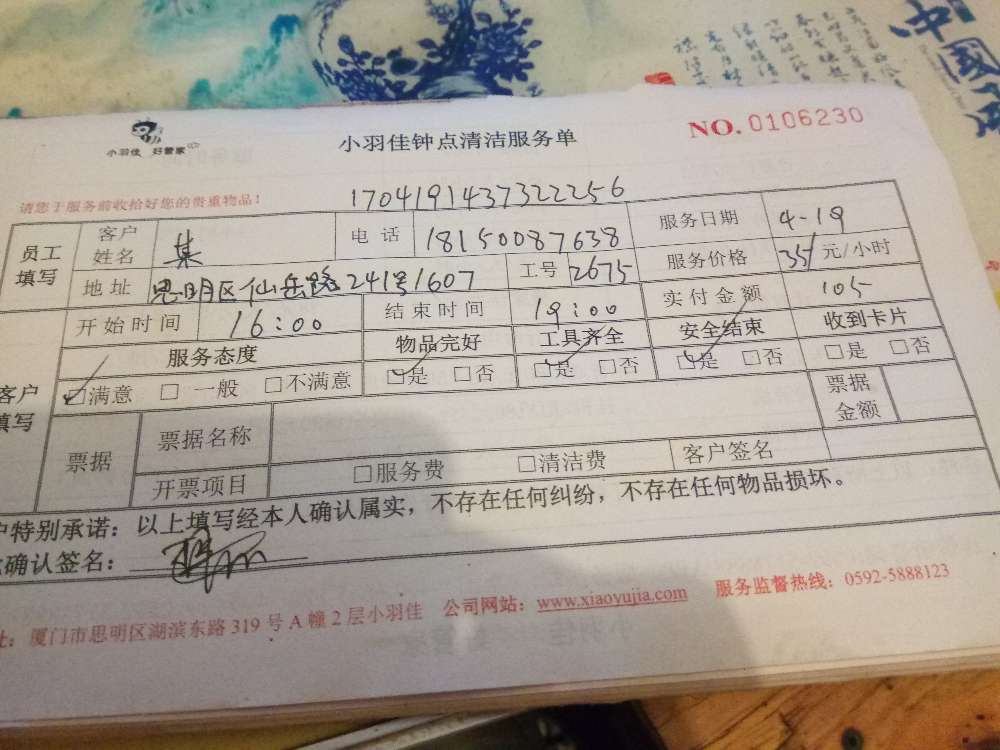 中國
小羽佳 好管家
小羽佳钟点清洁服务单
NO. 0106230
请您于服务前收拾好您的贵重物品!
1704191437322256
员工填写 客户姓名 某 电话 18150087638 服务日期 4-19
地址 思明区仙岳路241号1607 工号 2675 服务价格 35/元/小时
开始时间 16:00 结束时间 19:00 实付金额 105
客户填写 服务态度 物品完好 工具齐全 安全结束 收到卡片
☑满意 □一般 □不满意 ☑是 □否 ☑是 □否 ☑是 □否 □是 □否
票据 票据名称 票据金额
开票项目 □服务费 □清洁费 客户签名
户特别承诺:以上填写经本人确认属实,不存在任何纠纷,不存在任何物品损坏。
确认签名:
址:厦门市思明区湖滨东路319号A幢2层小羽佳 公司网站:www.xiaoyujia.com 服务监督热线:0592-5888123